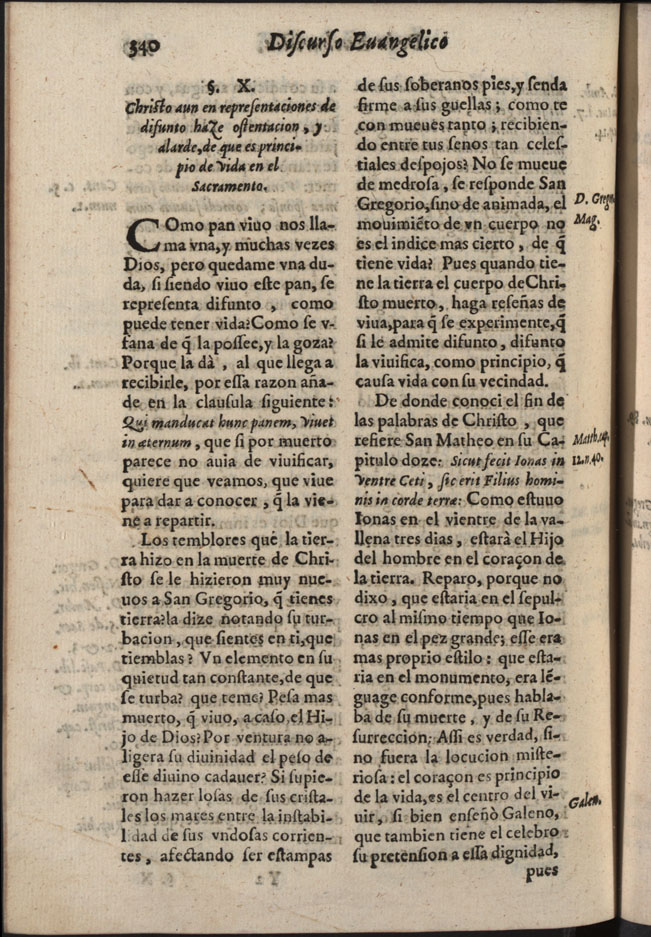 340
Discurso Euangelico
§. X.
Christo aun en representaciones de
difunto haze ostentacion, y
alarde, de que es princi-
pio de vida en el
Sacramento.
COmo pan viuo nos lla-
ma vna, y muchas vezes
Dios, pero quedame vna du-
da, si siendo viuo este pan, se
representa difunto, como
puede tener vida? Como se v-
fana de q̃ la possee, y la goza?
Porque la dà, al que llega a
recibirle, por essa razon aña-
de en la clausula siguiente:
Qui manducat hunc panem, viuet
in æternum, que si por muerto
parece no auia de viuificar,
quiere que veamos, que viue
para dar a conocer, q̃ la vie-
ne a repartir.
Los temblores que la tier-
ra hizo en la muerte de Chri-
sto se le hizieron muy nue-
uos a San Gregorio, q̃ tienes
tierra? la dize notando su tur-
bacion, que sientes en ti, que
tiemblas? Vn elemento en su
quietud tan constante, de que
se turba? que teme? Pesa mas
muerto, q̃ viuo, a caso el Hi-
jo de Dios? Por ventura no a-
ligera su diuinidad el peso de
esse diuino cadauer? Si supie-
ron hazer losas de sus crista-
les los mares entre la instabi-
lidad de sus vndosas corrien-
tes, afectando ser estampas
de sus soberanos pies, y senda
firme a sus guellas; como te
con mueues tanto; recibien-
do entre tus senos tan celes-
tiales despojos? No se mueue
de medrosa, se responde San
Gregorio, sino de animada, el
D. Grego.
Mag.
mouimiẽto de vn cuerpo no
es el indice mas cierto, de q̃
tiene vida? Pues quando tie-
ne la tierra el cuerpo de Chri-
sto muerto, haga reseñas de
viua, para q̃ se experimente, q̃
si le admite difunto, difunto
la viuifica, como principio, q̃
causa vida con su vecindad.
De donde conoci el fin de
las palabras de Christo, que
refiere San Matheo en su Ca-
Matth. cap.
pitulo doze: Sicut fecit Ionas in
12. n. 40.
ventre Ceti, sic erit Filius homi-
nis in corde terræ: Como estuuo
Ionas en el vientre de la va-
llena tres dias, estarà el Hijo
del hombre en el coraçon de
la tierra. Reparo, porque no
dixo, que estaria en el sepul-
cro al mismo tiempo que Io-
nas en el pez grande; esse era
mas proprio estilo: que esta-
ria en el monumento, era lẽ-
guage conforme, pues habla-
ba de su muerte, y de su Re-
surreccion. Assi es verdad, si-
no fuera la locucion miste-
riosa: el coraçon es principio
de la vida, es el centro del vi-
Galen.
uir, si bien enseñò Galeno,
que tambien tiene el celebro
su pretension a essa dignidad,
pues